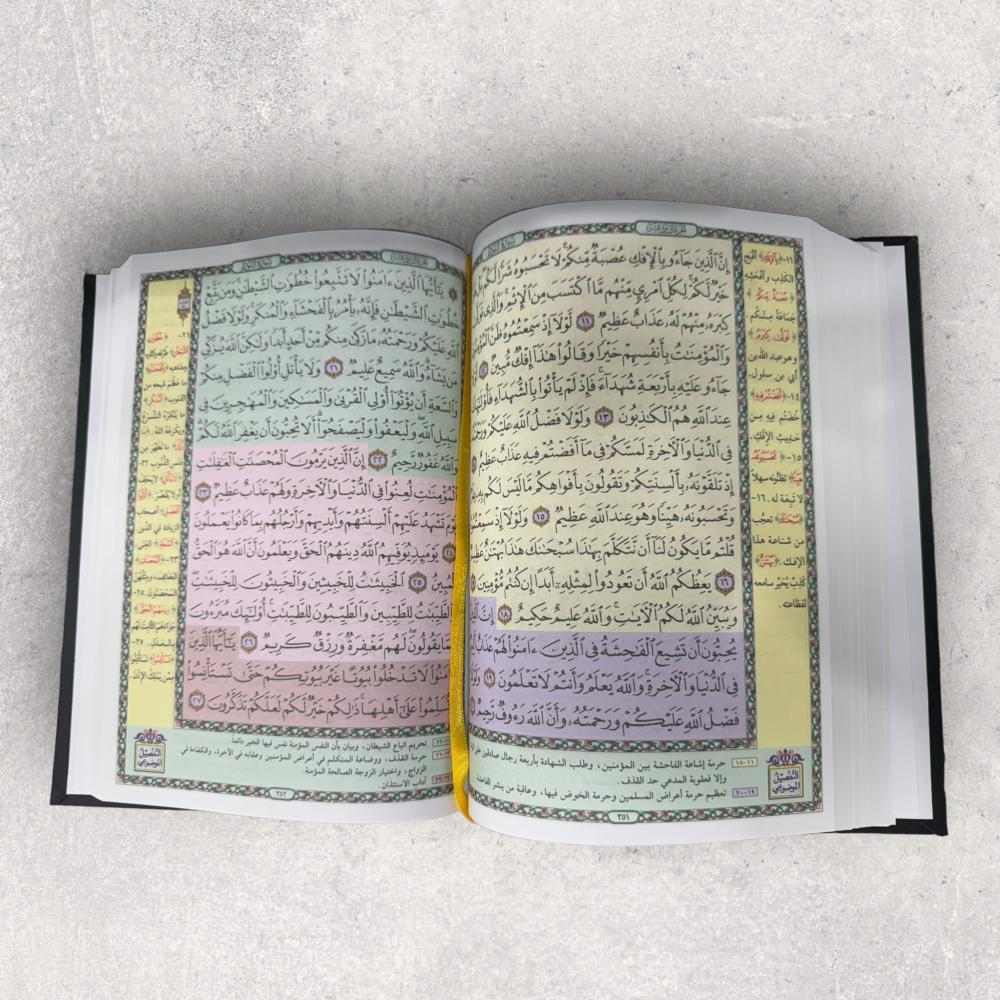 إِنَّ ٱلَّذِينَ جَآءُو بِٱلْإِفْكِ عُصْبَةٌ مِّنكُمْ لَا تَحْسَبُوهُ شَرًّا لَّكُم بَلْ هُوَ
خَيْرٌ لَّكُمْ لِكُلِّ ٱمْرِئٍ مِّنْهُم مَّا ٱكْتَسَبَ مِنَ ٱلْإِثْمِ وَٱلَّذِى تَوَلَّىٰ
كِبْرَهُۥ مِنْهُمْ لَهُۥ عَذَابٌ عَظِيمٌ ١١ لَّوْلَآ إِذْ سَمِعْتُمُوهُ ظَنَّ ٱلْمُؤْمِنُونَ
وَٱلْمُؤْمِنَٰتُ بِأَنفُسِهِمْ خَيْرًا وَقَالُوا۟ هَٰذَآ إِفْكٌ مُّبِينٌ ١٢ لَّوْلَا
جَآءُو عَلَيْهِ بِأَرْبَعَةِ شُهَدَآءَ فَإِذْ لَمْ يَأْتُوا۟ بِٱلشُّهَدَآءِ فَأُو۟لَٰٓئِكَ
عِندَ ٱللَّهِ هُمُ ٱلْكَٰذِبُونَ ١٣ وَلَوْلَا فَضْلُ ٱللَّهِ عَلَيْكُمْ وَرَحْمَتُهُۥ
فِى ٱلدُّنْيَا وَٱلْءَاخِرَةِ لَمَسَّكُمْ فِى مَآ أَفَضْتُمْ فِيهِ عَذَابٌ عَظِيمٌ
إِذْ تَلَقَّوْنَهُۥ بِأَلْسِنَتِكُمْ وَتَقُولُونَ بِأَفْوَاهِكُم مَّا لَيْسَ لَكُم بِهِۦ
وَتَحْسَبُونَهُۥ هَيِّنًا وَهُوَ عِندَ ٱللَّهِ عَظِيمٌ ١٥ وَلَوْلَآ إِذْ سَمِعْتُمُوهُ
قُلْتُم مَّا يَكُونُ لَنَآ أَن نَّتَكَلَّمَ بِهَٰذَا سُبْحَٰنَكَ هَٰذَا بُهْتَٰنٌ عَظِيمٌ
١٦ يَعِظُكُمُ ٱللَّهُ أَن تَعُودُوا۟ لِمِثْلِهِۦٓ أَبَدًا إِن كُنتُم مُّؤْمِنِينَ
وَيُبَيِّنُ ٱللَّهُ لَكُمُ ٱلْءَايَٰتِ وَٱللَّهُ عَلِيمٌ حَكِيمٌ ١٨ إِنَّ ٱلَّذِينَ
يُحِبُّونَ أَن تَشِيعَ ٱلْفَٰحِشَةُ فِى ٱلَّذِينَ ءَامَنُوا۟ لَهُمْ عَذَابٌ أَلِيمٌ
فِى ٱلدُّنْيَا وَٱلْءَاخِرَةِ وَٱللَّهُ يَعْلَمُ وَأَنتُمْ لَا تَعْلَمُونَ ١٩ وَلَوْلَا
فَضْلُ ٱللَّهِ عَلَيْكُمْ وَرَحْمَتُهُۥ وَأَنَّ ٱللَّهَ رَءُوفٌ رَّحِيمٌ
١١- ﴿بِٱلْإِفْكِ﴾ أقبح
الكذب وأفحشه
﴿عُصْبَةٌ مِّنكُمْ﴾
جماعة منكم.
﴿تَوَلَّىٰ كِبْرَهُ﴾
وهو عبد الله بن
أبي بن سلول.
١٤- ﴿أَفَضْتُمْ فِيهِ﴾
خضتم فيه من
حديث الإفك.
١٥- ﴿تَحْسَبُونَهُ
هَيِّنًا﴾ تظنونه سهلاً
لا تبعة له. ١٦-
﴿سُبْحَٰنَكَ﴾ تعجب
من شناعة هذا
الإفك. ﴿بُهْتَٰنٌ﴾
كذب يحير سامعه
لفظاعته.
التفصيل الموضوعي
١١-١٨ حرمة إشاعة الفاحشة بين المؤمنين، وطلب الشهادة بأربعة رجال صادقين على
وإلا فعقوبة المدعي حد القذف.
١٩-٢٠ تعظيم حرمة أعراض المسلمين وحرمة الخوض فيها، وعاقبة من ينشر الفاحشة
٣٥١
يَٰٓأَيُّهَا ٱلَّذِينَ ءَامَنُوا۟ لَا تَتَّبِعُوا۟ خُطُوَٰتِ ٱلشَّيْطَٰنِ وَمَن يَتَّبِعْ
خُطُوَٰتِ ٱلشَّيْطَٰنِ فَإِنَّهُۥ يَأْمُرُ بِٱلْفَحْشَآءِ وَٱلْمُنكَرِ وَلَوْلَا فَضْلُ
ٱللَّهِ عَلَيْكُمْ وَرَحْمَتُهُۥ مَا زَكَىٰ مِنكُم مِّنْ أَحَدٍ أَبَدًا وَلَٰكِنَّ ٱللَّهَ يُزَكِّى
مَن يَشَآءُ وَٱللَّهُ سَمِيعٌ عَلِيمٌ ٢١ وَلَا يَأْتَلِ أُو۟لُوا۟ ٱلْفَضْلِ مِنكُمْ
وَٱلسَّعَةِ أَن يُؤْتُوٓا۟ أُو۟لِى ٱلْقُرْبَىٰ وَٱلْمَسَٰكِينَ وَٱلْمُهَٰجِرِينَ فِى
سَبِيلِ ٱللَّهِ وَلْيَعْفُوا۟ وَلْيَصْفَحُوٓا۟ أَلَا تُحِبُّونَ أَن يَغْفِرَ ٱللَّهُ لَكُمْ
وَٱللَّهُ غَفُورٌ رَّحِيمٌ ٢٢ إِنَّ ٱلَّذِينَ يَرْمُونَ ٱلْمُحْصَنَٰتِ ٱلْغَٰفِلَٰتِ
ٱلْمُؤْمِنَٰتِ لُعِنُوا۟ فِى ٱلدُّنْيَا وَٱلْءَاخِرَةِ وَلَهُمْ عَذَابٌ عَظِيمٌ ٢٣
يَوْمَ تَشْهَدُ عَلَيْهِمْ أَلْسِنَتُهُمْ وَأَيْدِيهِمْ وَأَرْجُلُهُم بِمَا كَانُوا۟ يَعْمَلُونَ
٢٤ يَوْمَئِذٍ يُوَفِّيهِمُ ٱللَّهُ دِينَهُمُ ٱلْحَقَّ وَيَعْلَمُونَ أَنَّ ٱللَّهَ هُوَ ٱلْحَقُّ
ٱلْمُبِينُ ٢٥ ٱلْخَبِيثَٰتُ لِلْخَبِيثِينَ وَٱلْخَبِيثُونَ لِلْخَبِيثَٰتِ
وَٱلطَّيِّبَٰتُ لِلطَّيِّبِينَ وَٱلطَّيِّبُونَ لِلطَّيِّبَٰتِ أُو۟لَٰٓئِكَ مُبَرَّءُونَ
مِمَّا يَقُولُونَ لَهُم مَّغْفِرَةٌ وَرِزْقٌ كَرِيمٌ ٢٦ يَٰٓأَيُّهَا ٱلَّذِينَ
ءَامَنُوا۟ لَا تَدْخُلُوا۟ بُيُوتًا غَيْرَ بُيُوتِكُمْ حَتَّىٰ تَسْتَأْنِسُوا۟
وَتُسَلِّمُوا۟ عَلَىٰٓ أَهْلِهَا ذَٰلِكُمْ خَيْرٌ لَّكُمْ لَعَلَّكُمْ تَذَكَّرُونَ ٢٧
التفصيل الموضوعي
تحريم اتباع الشيطان، وبيان بأن النفس المؤمنة نفس فيها الخير دائماً.
حرمة القذف، ووضاعة المتكلم في أعراض المؤمنين وعقابه في الآخرة، والكفاءة في
الزواج، واختيار الزوجة الصالحة المؤمنة.
آداب الاستئذان.
٣٥٢